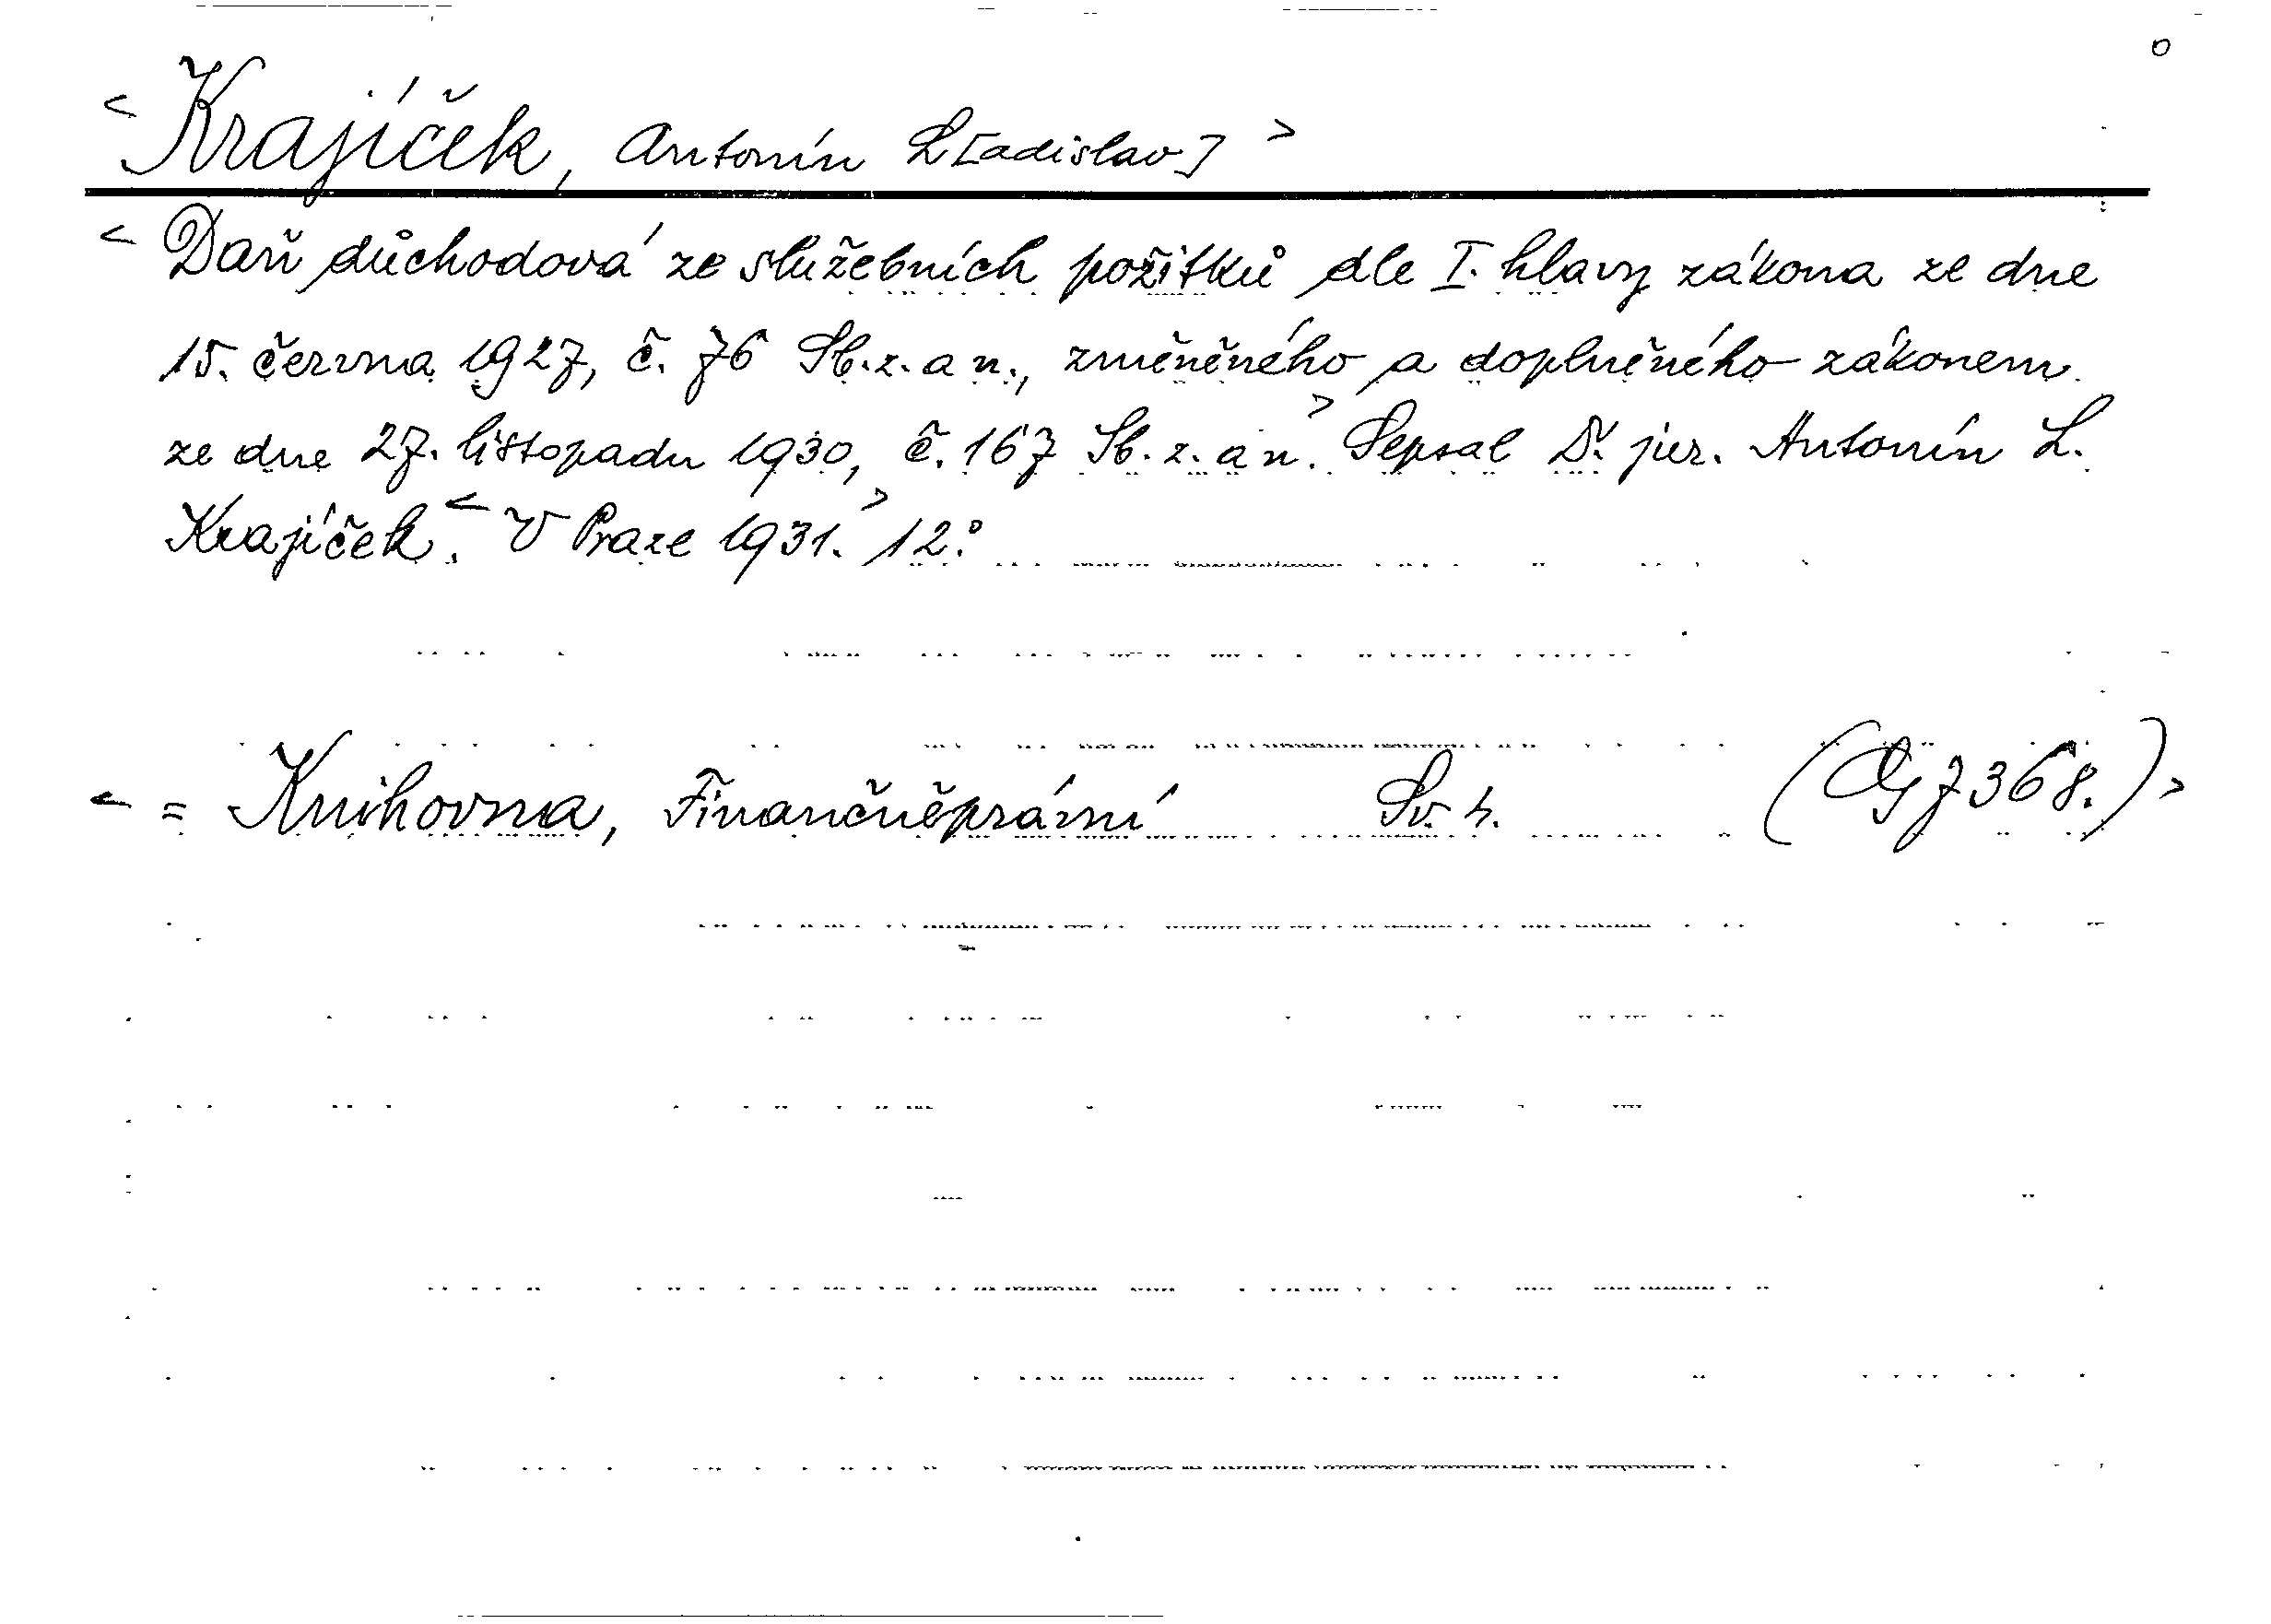 < Krajíček, Antonín L[adislav] >
< Daň důchodová ze služebních požitků dle I. hlavy zákona ze dne
15. června 1927, č. 76 Sb. z. a n., změněného a doplněného zákonem
ze dne 27. listopadu 1930, č. 167 Sb. z. a n. > Sepsal Dr. jur. Antonín L.
Krajíček. < V Praze 1931. > 12.°
< = Knihovna, Finančněprávní Sv. 4. (Og 7368.) >